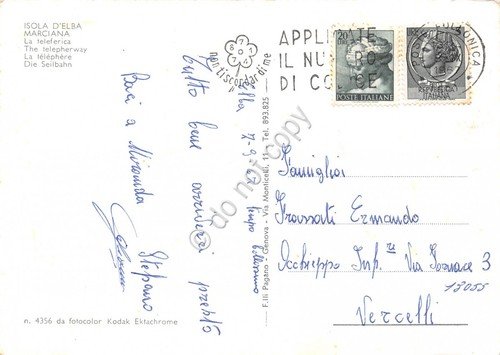 ISOLA D'ELBA
MARCIANA
La teleferica
The telepherway
La téléphère
Die Seilbahn
non ti scordar di me
APPLICATE
IL NUMERO
DI CODICE
20
POSTE ITALIANE
REPUBBLICA
ITALIANA
Elba 7-9-67
Tempo bellissimo
tutto bene arrivederci presto
Baci a Miranda
Stefano
Famiglia
Frassati Ermando
Occhieppo Inf. re Via Fornace 3
13055
Vercelli
F.lli Pagano - Genova - Via Monticelli, 11 r. Tel. 893.825
n. 4356 da fotocolor Kodak Ektachrome
do not copy